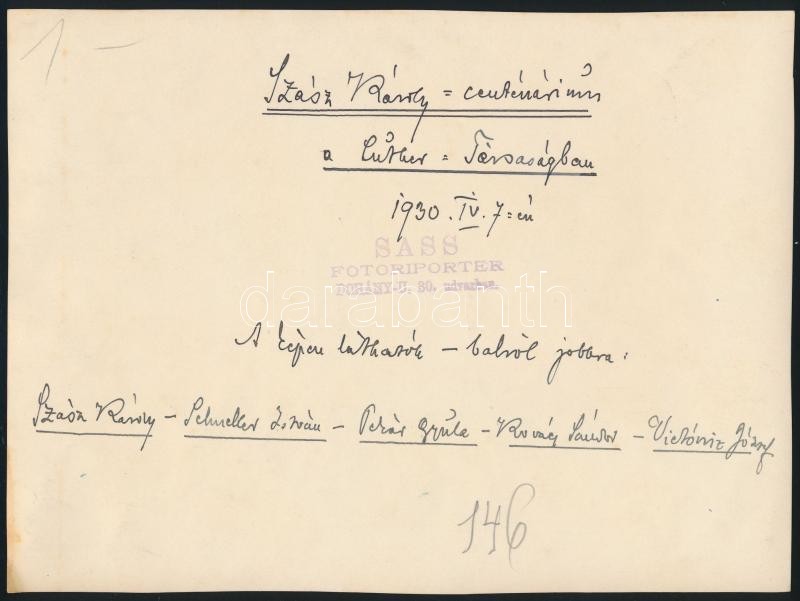 1 –
Szász Károly = centenáriúm
a Lúther = Társaságban
1930. IV. 7=én
SASS
FOTORIPORTER
DOHÁNY-U. 30. udvarban.
darabanth
A képen láthatók – balról jobbra:
Szász Károly – Schneller István – Pekár Gyúla – Kovács Sándor – Victórisz József
146